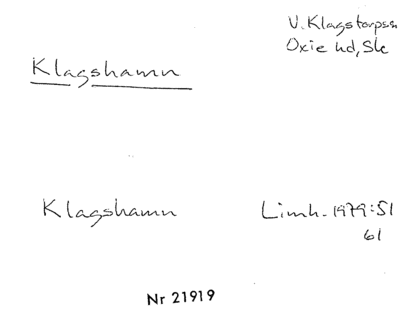 V. Klagstorps sn
Oxie hd, Sk
Klagshamn
Klagshamn
Limh. 1979:51
61
Nr 21919